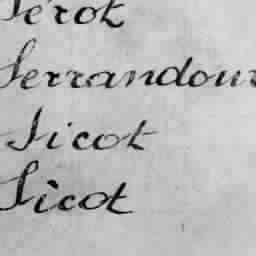 Sérot
Serrandour
Sicot
Sicot